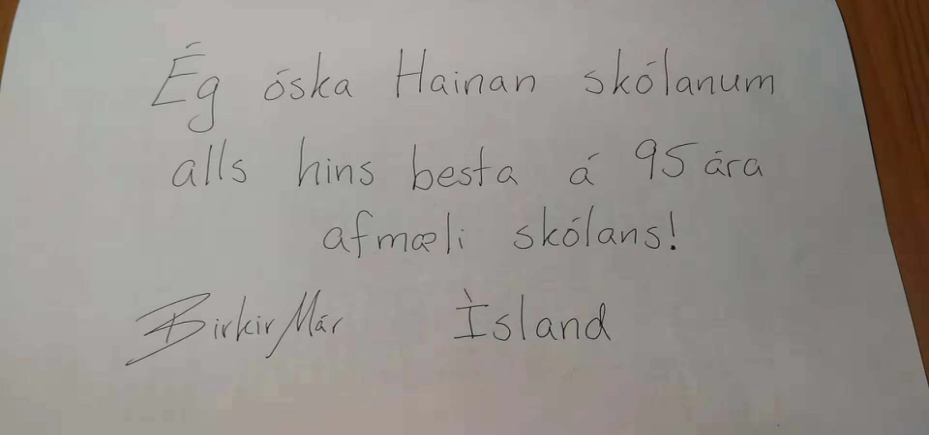 Ég óska Hainan skólanum
alls hins besta á 95 ára
afmæli skólans!
Birkir Már Ísland